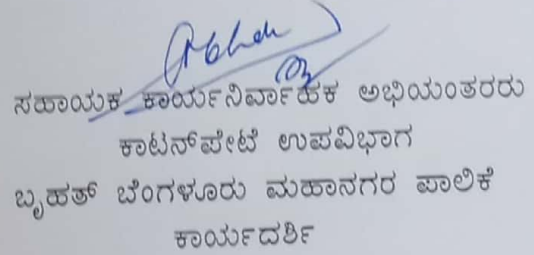 ಸಹಾಯಕ ಕಾರ್ಯನಿರ್ವಾಹಕ ಅಭಿಯಂತರರು
ಕಾಟನ್‌ಪೇಟೆ ಉಪವಿಭಾಗ
ಬೃಹತ್ ಬೆಂಗಳೂರು ಮಹಾನಗರ ಪಾಲಿಕೆ
ಕಾರ್ಯದರ್ಶಿ